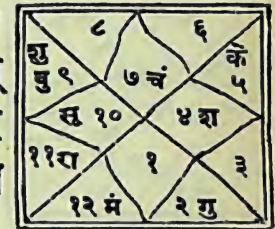 ८ ६
शु के
बु ९ ७ चं ५
सू १० ४ श
११ रा १ ३
१२ मं २ गु